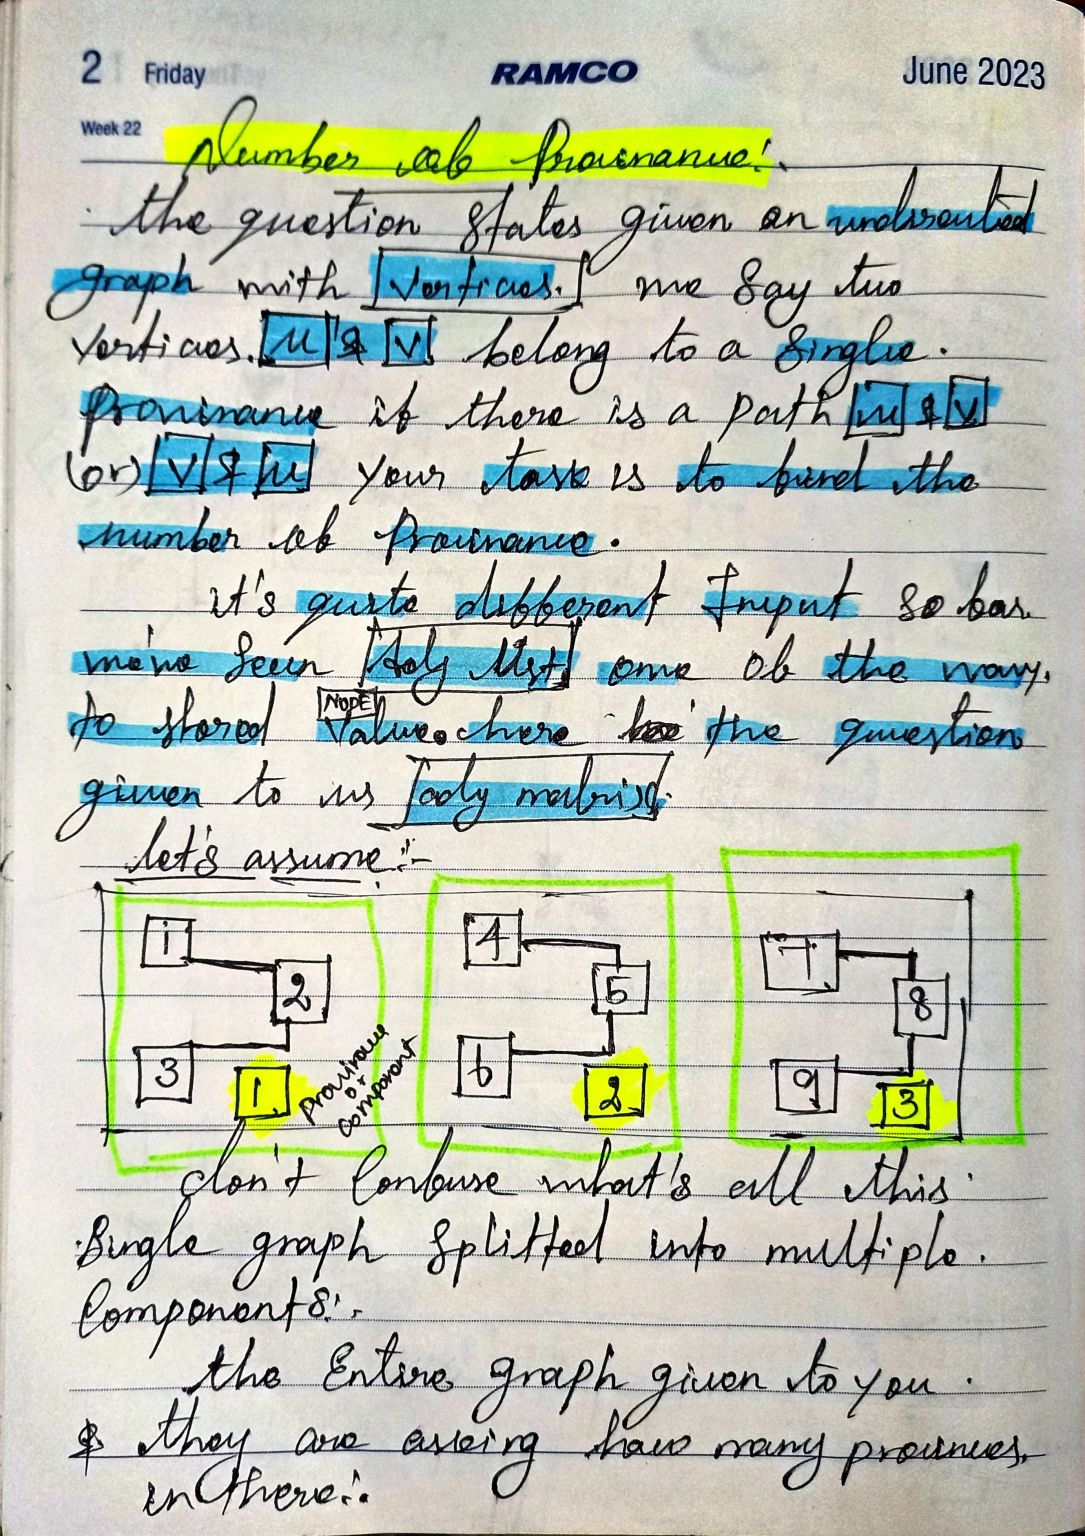 2 Friday RAMCO June 2023
Week 22
Number of Provinance:
the question states given an undirected
graph with Vertices. we say two
Vertices. u & v belong to a single.
Provinance if there is a path u & v
(or) v & u your task is to find the
number of Provinance.
it's quite different Input so far
we've seen Adj List one of the way.
NODE
to stored Value. here the question
given to us adj matrix.
let's assume:-
1 4 7
2 5 8
3 6 9
1 2 3
Province
or
Component
don't Confuse what's all this
Single graph Splitted into multiple.
Components:.
the Entire graph given to you.
& they are asking how many provinces.
in there:.